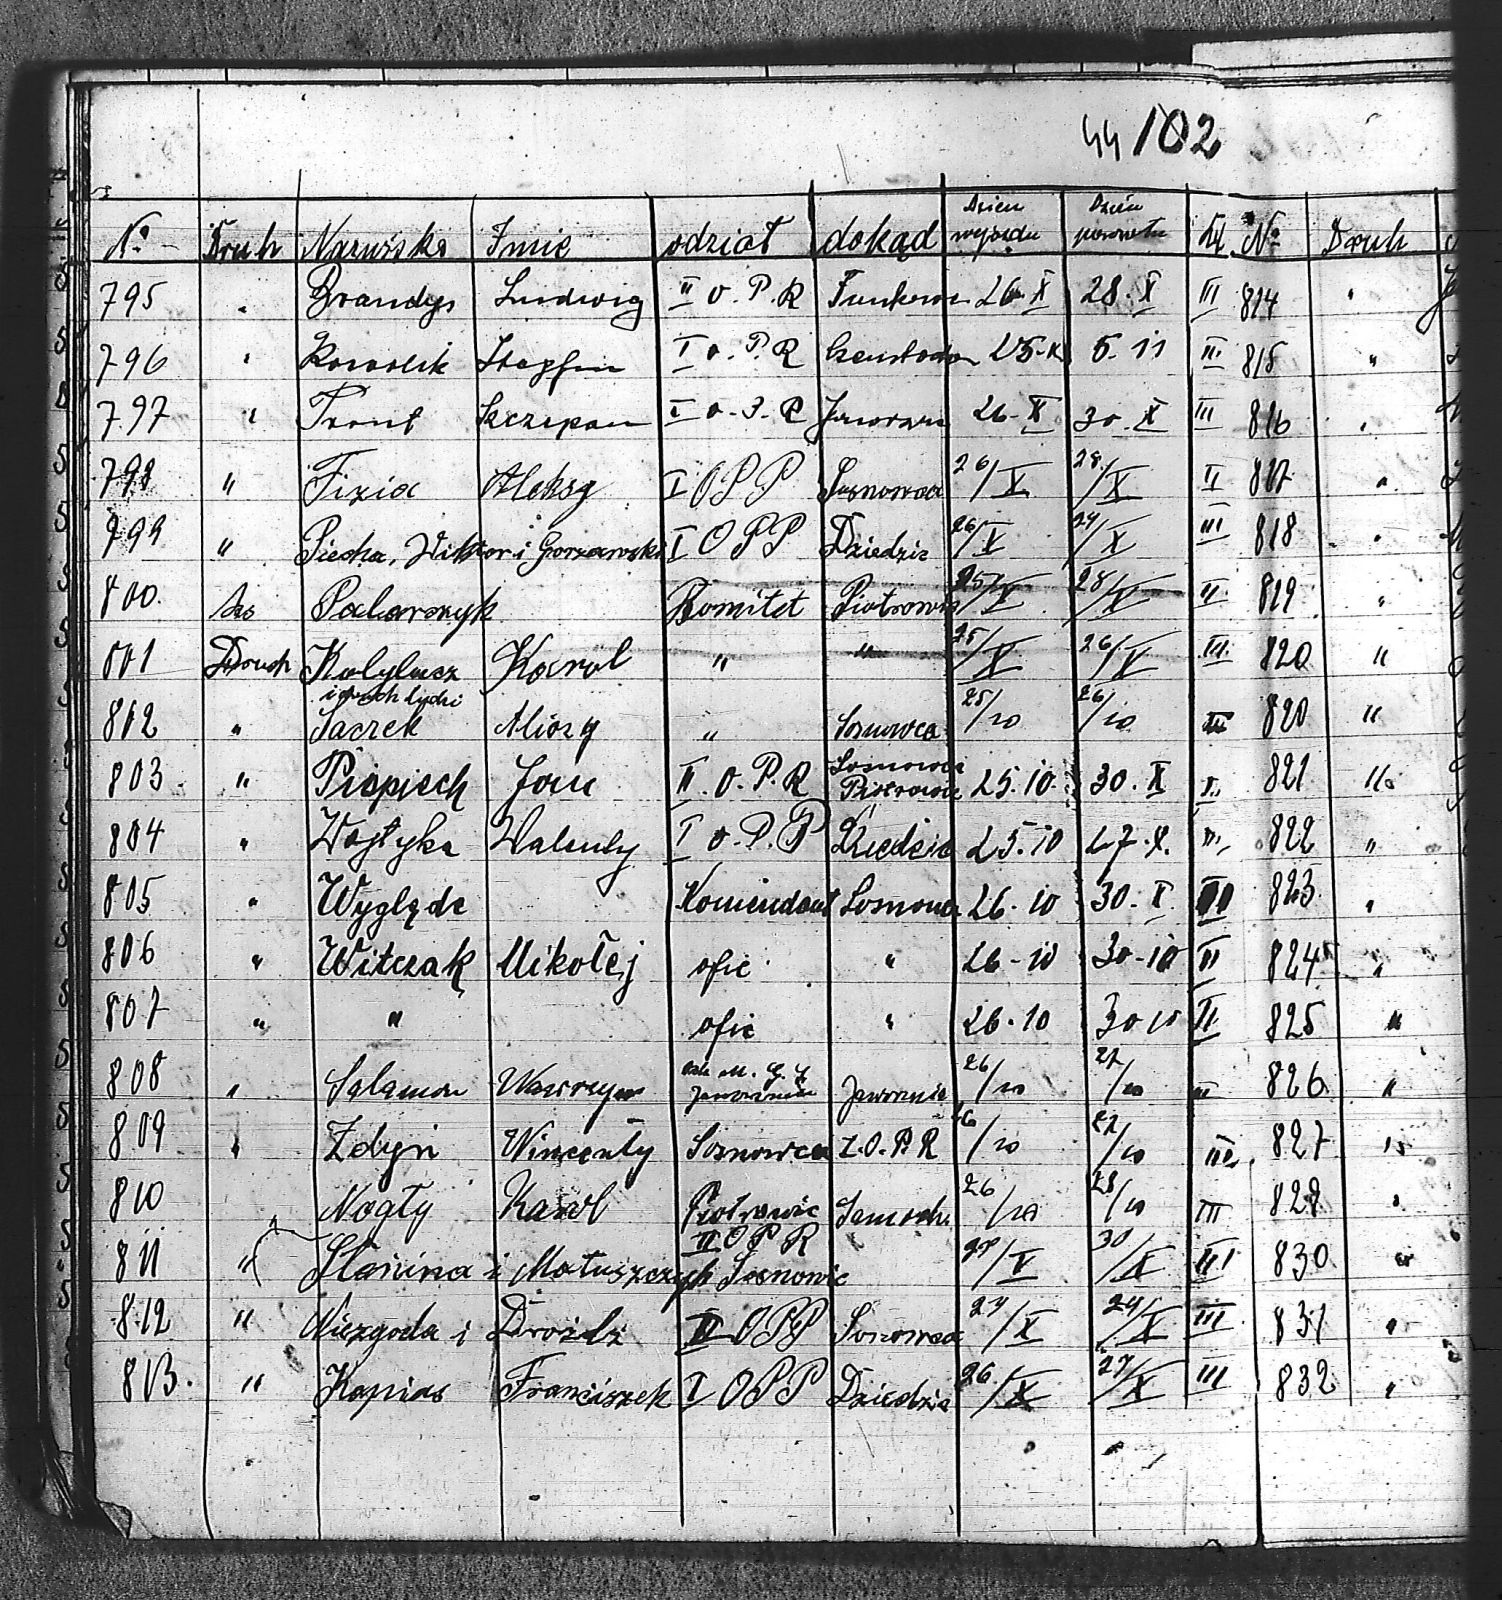 44 102
No Druh Nazwisko Imie odział dokąd Dzień wyjazdu Dzień powrotu Kl. No Druh
795 " Brandys Ludwig II O.P.R 26.X 28.X III 814 "
796 " Kowolik I o.P.R 25.X 5.11 III 815 "
797 " Szczepan I o. 26.X 30.X III 816 "
798 " Fizia Aleksy I OPP Sosnowca 26/X 28/X II 817 "
799 " Piecha, Wiktor i Gorzawski I OPP Dziedzic 26/X 27/X III 818 "
800. Palarczyk Komitet Piotrowic 25/X 28/X II 819 "
801 Druch Karol " " 25/X 26/X III 820 "
802 " Jacrek Aliozy " Sosnowca 25/10 26/10 III 820 "
803 " Piepiech Jan II.O.P.R Sosnowca Piotrowic 25.10. 30.X 821 "
804 " Wojtyka Walenty I o.P.P Dziedzic 25.10 27.X. III 822 "
805 " Wyględa Komendant Sosnowca 26.10 30.X. III 823. "
806 " Witczak Mikołej ofic " 26-10 30-10 II 824 "
807 " " ofic " 26.10 30 10 II 825 "
808 " Salamon Wawrzyn Jaworznie 26/10 27/10 826 "
809 " Zdyń Wincenty Sosnowca I.O.P.R 26/10 27/10 III 827 "
810 Nogły Karol Piotrowic 26/10 28/10 III 829 "
811 " Słanina i Matuszczyk II O P R Sosnowic 27/X 30/X III 830 "
812 " Niezgoda i Drozdz II OPP Sosnowca 27/X 29/X III 831 "
813. " Kapias Franciszek I OPP Dziedzic 26/X 27/X III 832 "